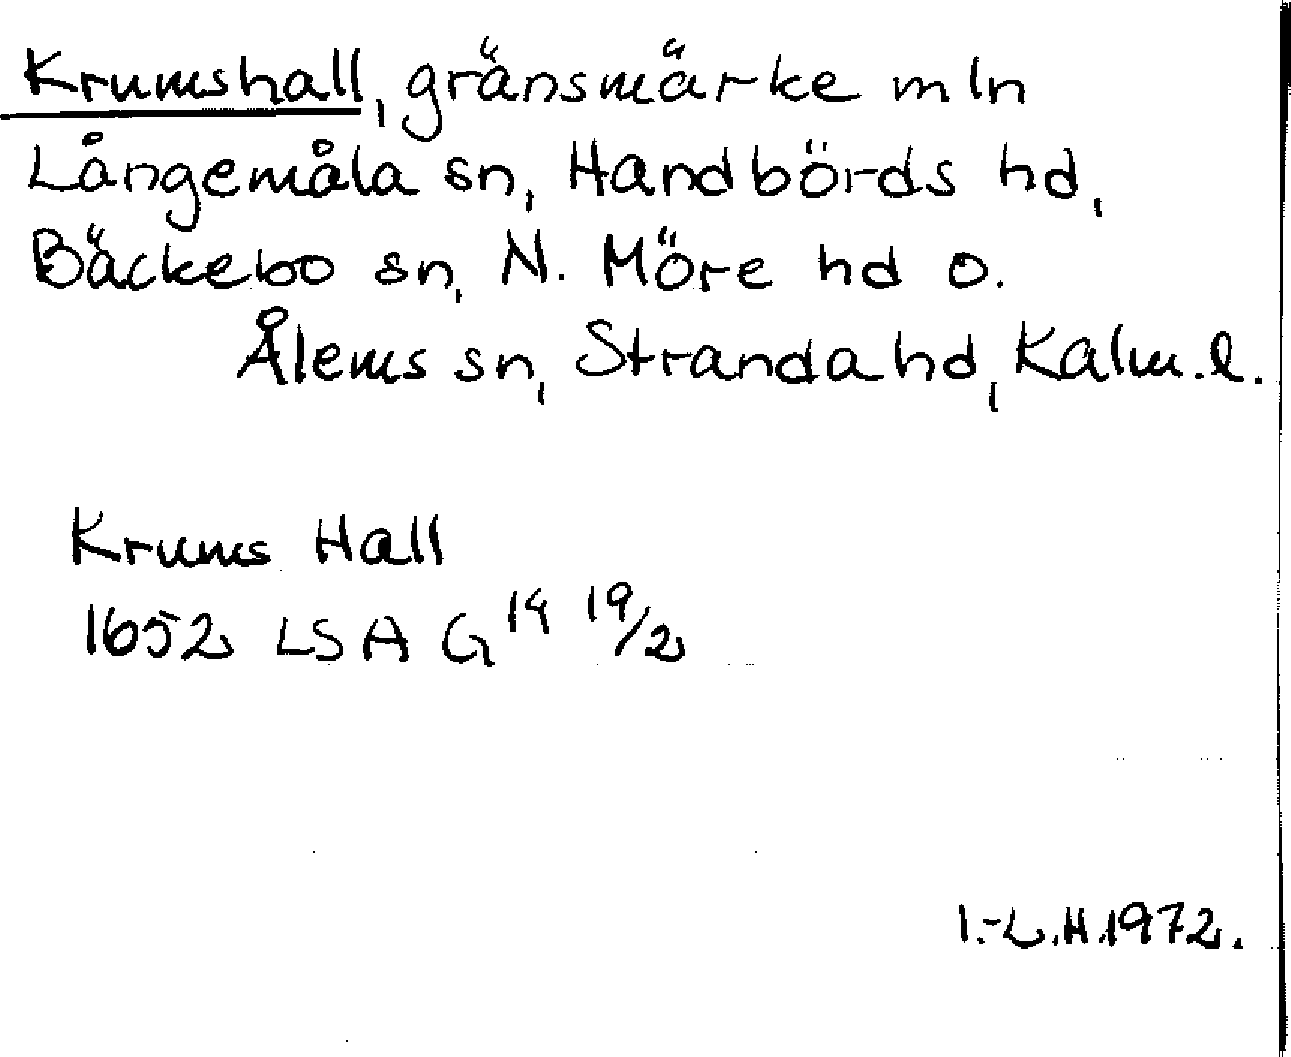 Krumshall, gränsmärke mln
Långemåla sn, Handbörds hd,
Bäckebo sn, N. Möre hd o.
Ålems sn, Stranda hd, Kalm. l.
Krums Hall
1652 LSA G 14 19/2
I.-L.H. 1972.